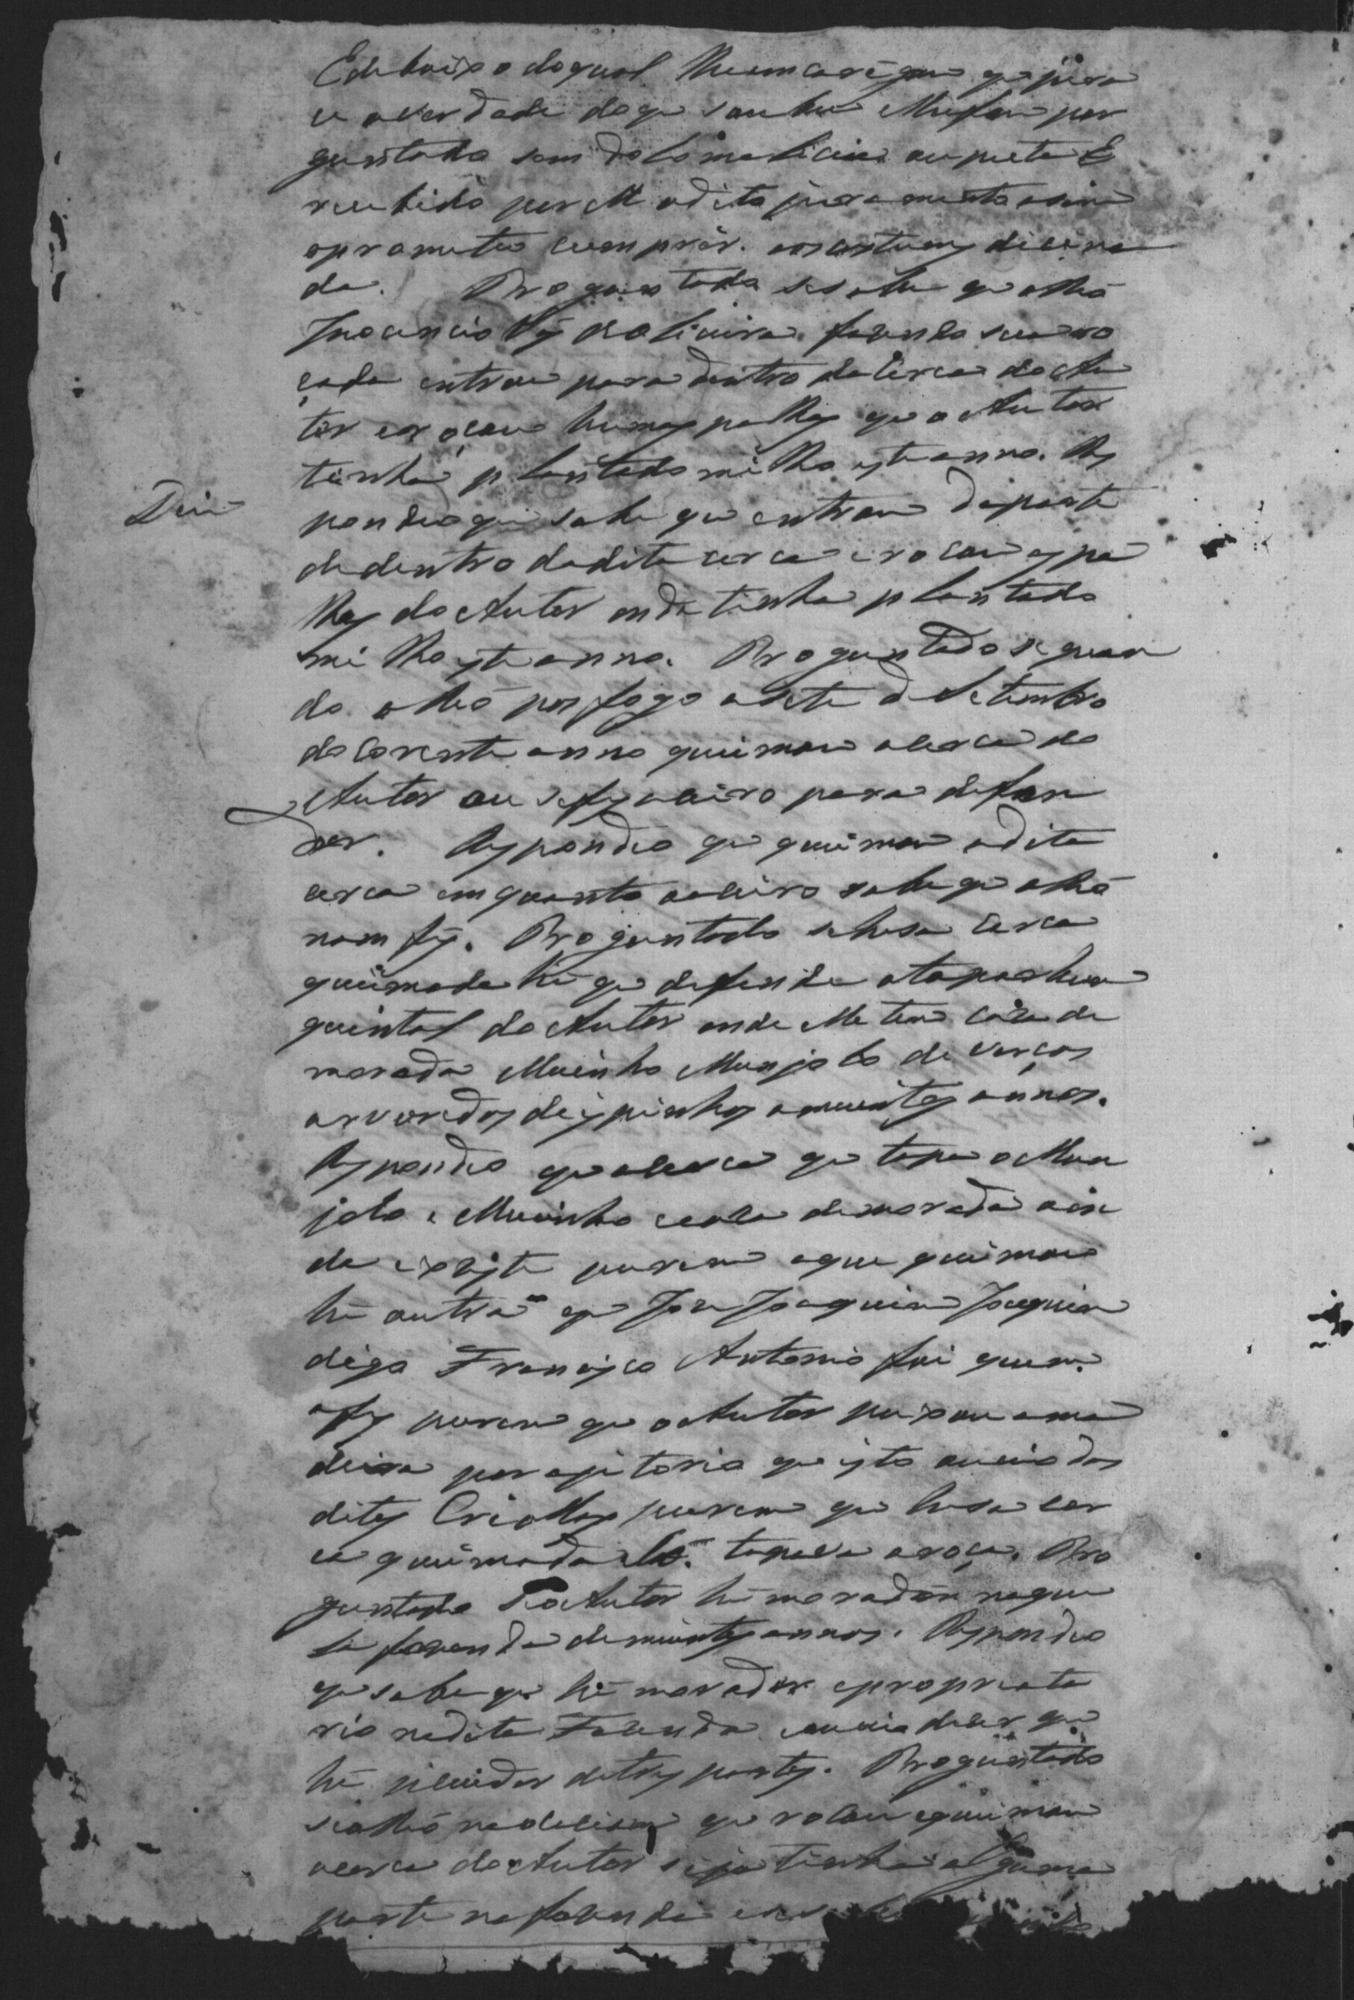 E debaixo do qual lhe emcaregou que jura
ce a verdade do que soubese e lhe fose per
guntado sem dolo malicia ou peita E
recebido por elle o dito juramento asim
o prometeu cumprir. aos custumes dice na
da. Proguntado se sabe que o Reo
Inocencio de Oliveira. fazendo sua ro
çada entrou para dentro da cerca do Au
tor e roçou humas palhas que o Autor
tinha plantado milho este anno. Res
pondeo que sabe que entrou da parte
de dentro da dita cerca e roçou as pa
lhas do Autor onde tinha plantado
milho este anno. Proguntado se quan
do o Reo pos fogo a sete de Setembro
do Corente anno queimou a cerca do
Autor ou se fez aceiro para defen
der. Respondeo que queimou a dita
cerca em quanto aceiro sabe que o Reo
nam fez. Proguntado se hesa cerca
queimada hé que defende e tapa hum
quintal do Autor onde elle tem caza de
morada Moinho Monjolo de varios
arvoredos de espinhos a muintos annos.
Respondeo que a cerca que tapa o Mon
jolo e Moinho e caza de morada ain
da existe porem a que queimou
hé outra que Joze Joaquim Joaquim
digo Francisco Antonio foi quem
a fez porem que o Autor puxou a ma
deira por ajitorio que isto ouvio dos
ditos Criollos porem que hesa cer
ca queimada hé. tapava a roça. Pro
guntado se o Autor hé morador naque
la fazenda de muintos annos. Respondeo
que sabe que hé morador e propriata
rio na dita Fazenda e ouvio dizer que
hé pesuidor de tres partes. Proguntado
se o Reo na ocazião que roçou e queimou
a cerca do Autor se ja tinha alguma
parte na fazenda